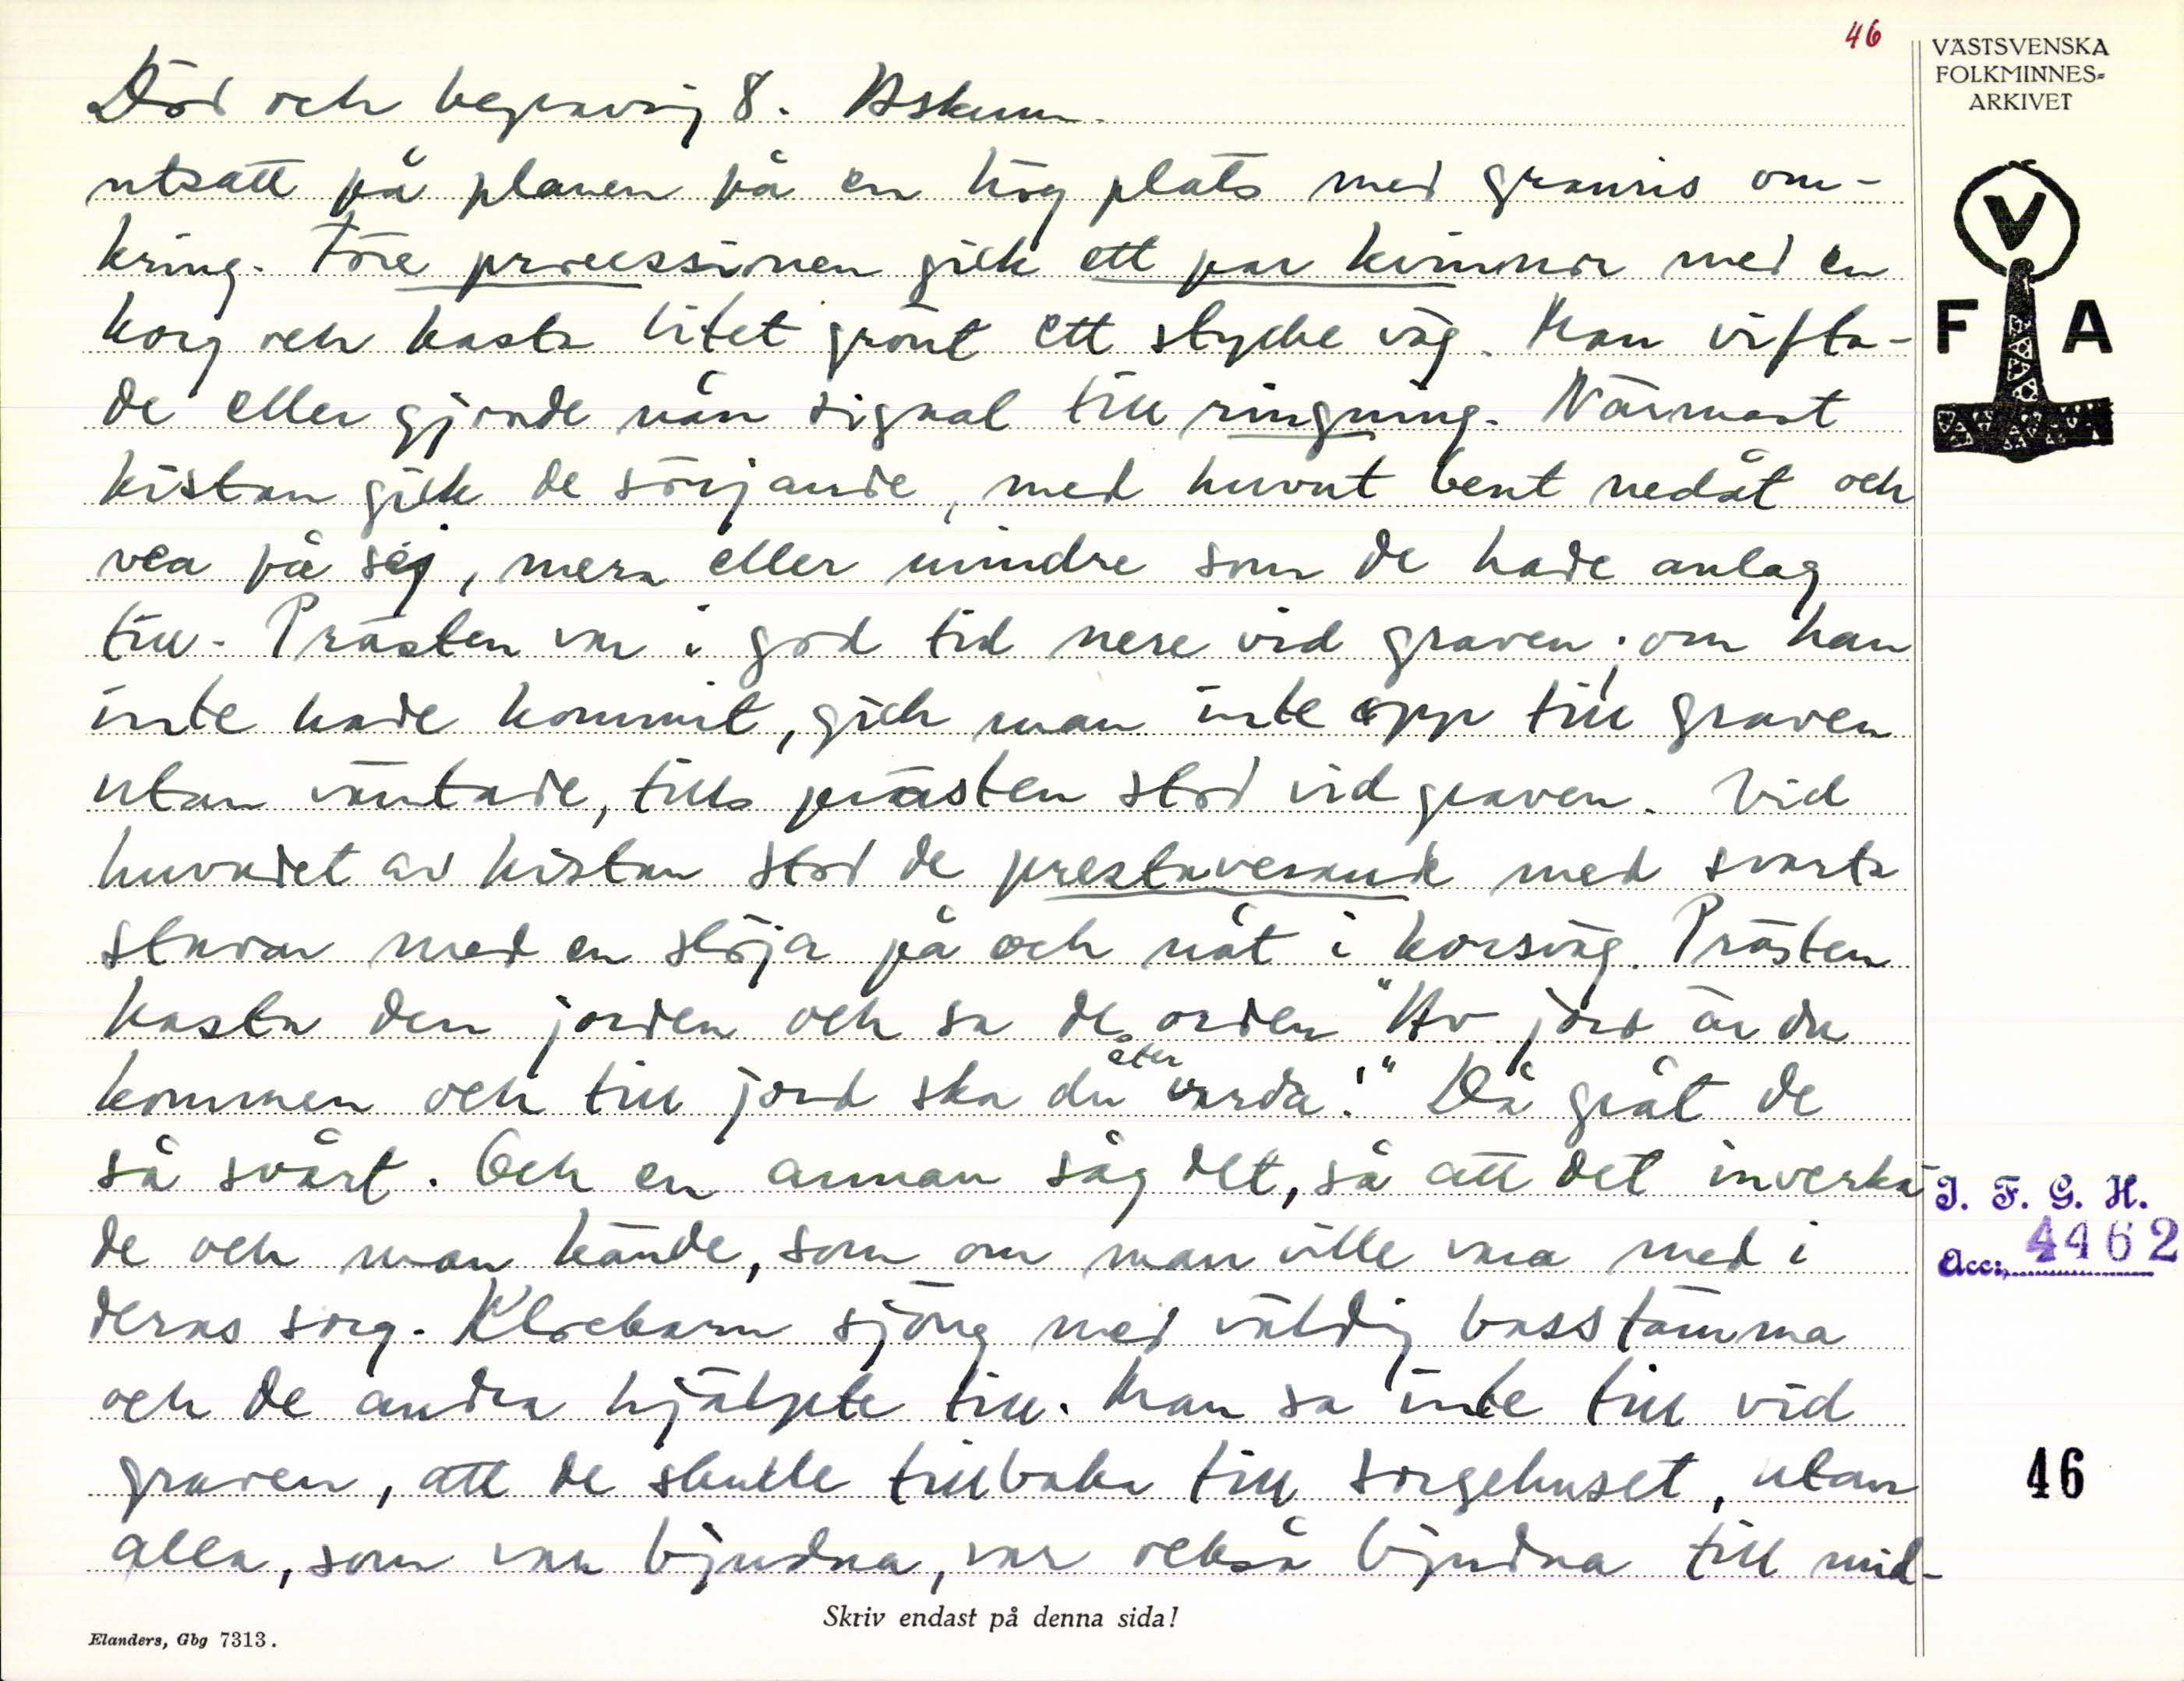 46
VÄSTSVENSKA
FOLKMINNES-
ARKIVET
V
F A
Död och begravnig 8. Askum.
utsatt på planen på en hög plats med granris om-
kring. Före processionen gick ett par kvinnor med en
korg och kasta litet grönt ett stycke väg. Man vifta-
de eller gjorde nån signal till ringning. Närmast
kistan gick de sörjande, med huvut bent nedåt och
vea på sej, mera eller mindre som de hade anlag
till. Prästen var i god tid nere vid graven; om han
inte hade kommit, gick man inte opp till graven
utan väntade, tills prästen stod vid graven. Vid
huvudet av kistan stod de prestaverande med svarta
stavar med en slöja på och nåt i korsväg. Prästen
kasta den jorden och sa de orden "Av jord är du
kommen och till jord ska du åter varda." Då grät de
så svårt. Och en annan såg det, så att det inverka-
de och man kände, som om man ville vara med i
deras sorg. Klockarn sjöng med väldig basstämma
och de andra hjälpte till. Man sa inte till vid
graven, att de skulle tillbaka till sorgehuset, utan
alla, som var bjudna, var också bjudna till mid-
I. F. G. H.
Acc: 4462
46
Skriv endast på denna sida!
Elanders, Gbg 7313.